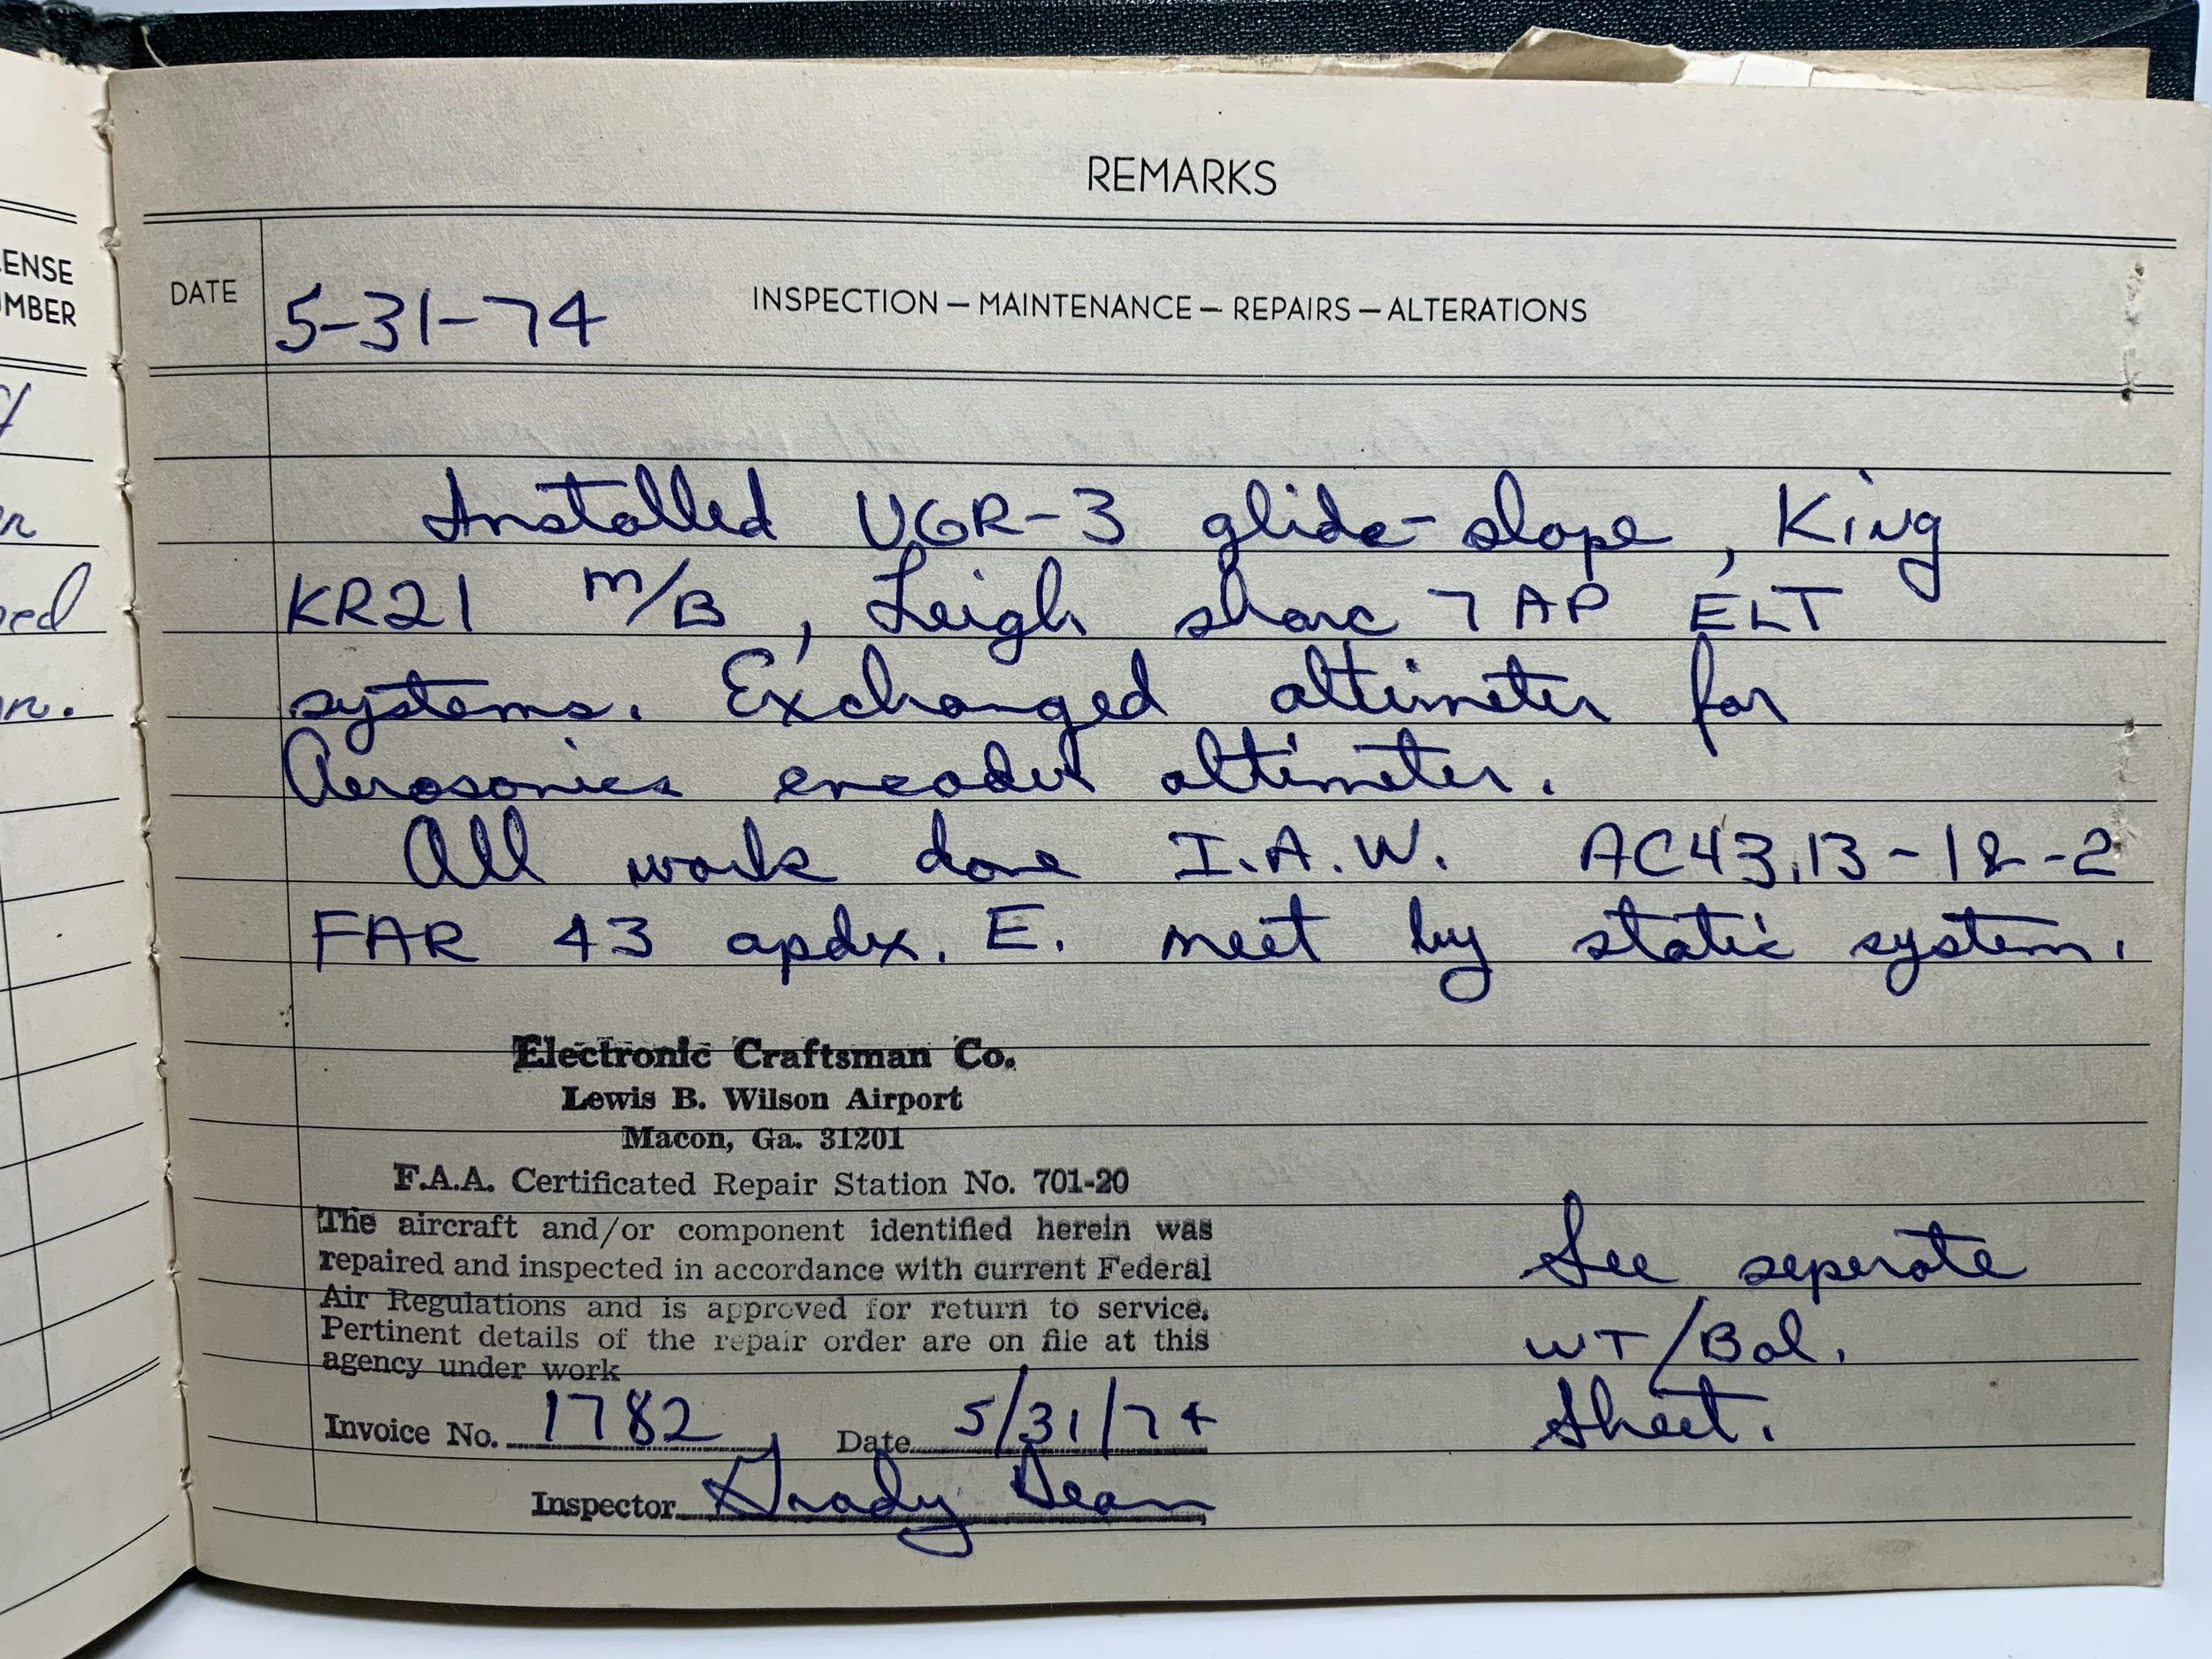 REMARKS
ENSE
UMBER
DATE
5-31-74
INSPECTION — MAINTENANCE — REPAIRS — ALTERATIONS
Installed UGR-3 glide-slope, King
KR21 M/B, Leigh sharc 7 AP ELT
systems. Exchanged altimeter for
Aerosonics encoder altimeter.
All work done I.A.W. AC43.13-1&-2
FAR 43 apdx. E. meet by static system.
Electronic Craftsman Co.
Lewis B. Wilson Airport
Macon, Ga. 31201
F.A.A. Certificated Repair Station No. 701-20
The aircraft and/or component identified herein was
repaired and inspected in accordance with current Federal
Air Regulations and is approved for return to service.
Pertinent details of the repair order are on file at this
agency under work
Invoice No. 1782 Date 5/31/74
Inspector Grady Dean
See seperate
WT/Bal.
Sheet.